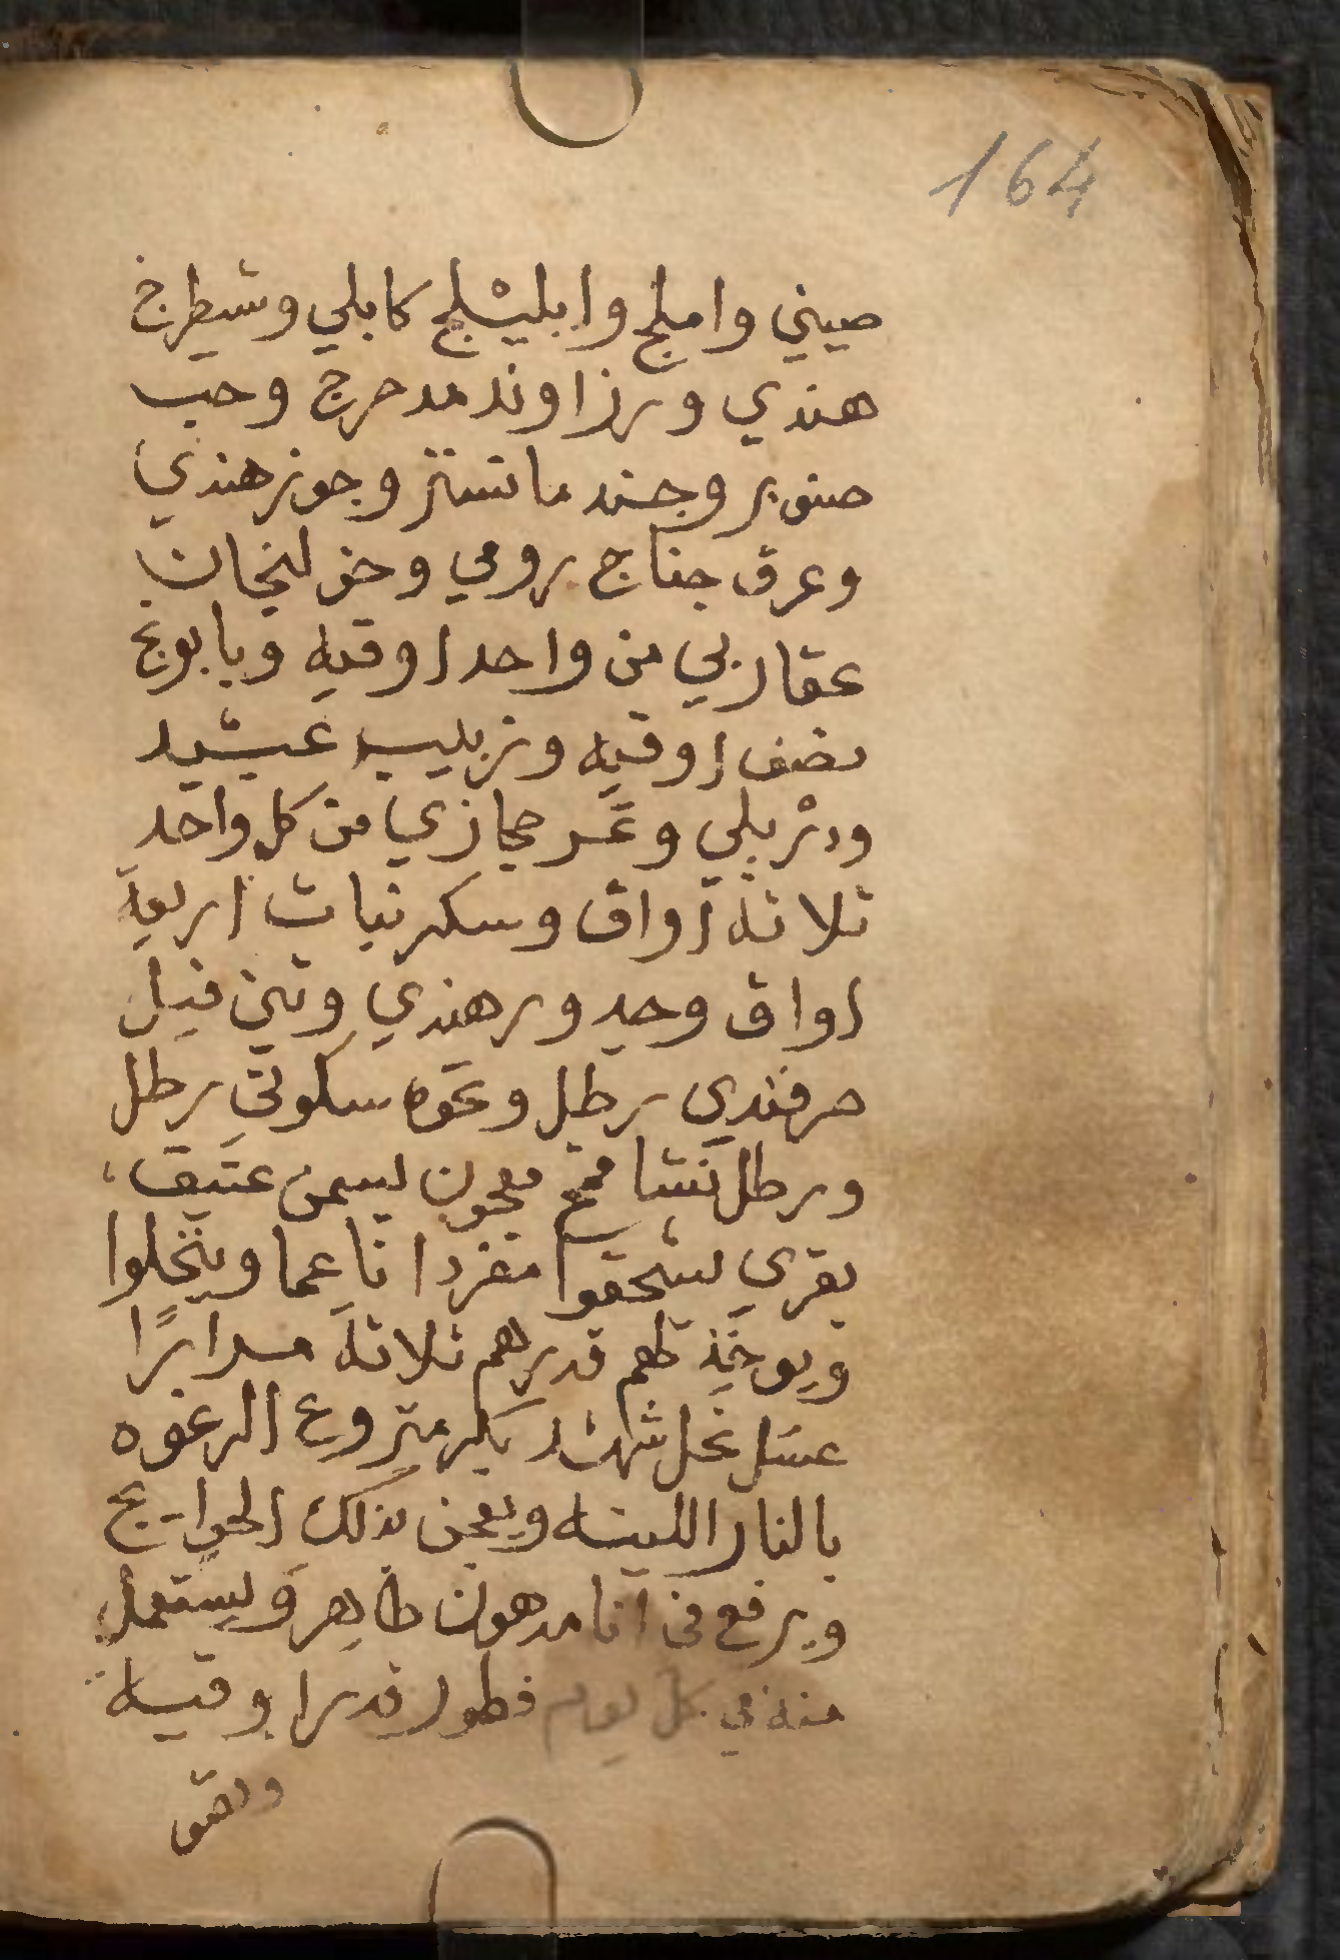 164
صيني واملج وابليلج كابلي وشيطرج
هندي وزراوند مدحرج وحب
صنوبر وجند ماتستر وجوز هندي
وعرق جناح رومي وخولنجان
عقاربي من واحد اوقيه وبابونج
نصف اوقيه وزبيب عبيد
دربلي وتمر حجازي من كل واحد
ثلاثة اواق وسكر نبات اربعة
اواق وجوز هندي وتين فيل
رطل وعجوه سكوتي رطل
ورطل نشا قمح معجون بسمن عتيق
بقري يسحقوا مفردا ناعما وينخلوا
ويوخذ لهم قدرهم ثلاثة مرارًا
عسل نحل شهد بكر منزوع الرغوه
بالنار اللينه ويعجن بذلك الحوايج
ويرفع في انا مدهون طاهر ويستعمل
منه في كل يوم فطور قدر اوقيه
وهو